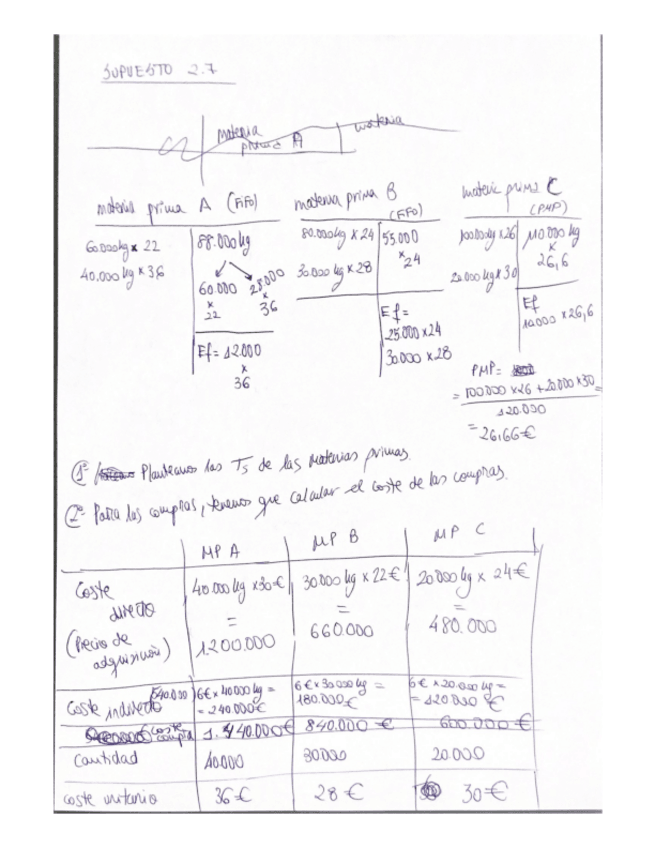 SUPUESTO 2.7
materia
prima A
materia
materia prima A (FIFO)
60.000kg x 22
40.000 kg x 36
88.000 kg
60.000
x
22
28.000
x
36
Ef = 12.000
x
36
materia prima B
(FIFO)
80.000kg x 24
30.000 kg x 28
55.000
x
24
Ef =
25.000 x 24
30.000 x 28
materia prima C
(PMP)
100.000kg x 26
20.000 kg x 30
110.000 kg
x
26,6
Ef
10.000 x 26,6
PMP =
= 100.000 x 26 + 20.000 x 30 =
120.000
= 26,66 €
1º Planteamos las Ts de las materias primas.
2º Para las compras, tenemos que calcular el coste de las compras.
MP A MP B MP C
Coste directo (Precio de adquisición)
40.000 kg x 30 € = 1.200.000
30.000 kg x 22 € = 660.000
20.000 kg x 24 € = 480.000
Coste indirecto (540.000)
6€ x 40.000 kg = = 240.000 €
6€ x 30.000 kg = 180.000 €
6€ x 20.000 kg = = 120.000 €
coste compra 1.440.000€ 840.000 € 600.000 €
Cantidad 40.000 30.000 20.000
coste unitario 36 € 28 € 30 €